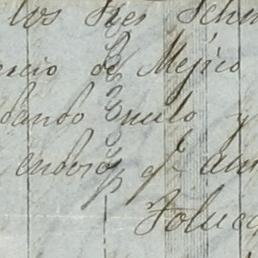 los Sres Sch
ercio de Mejico
dando nulo y
endoso qe
Toluca